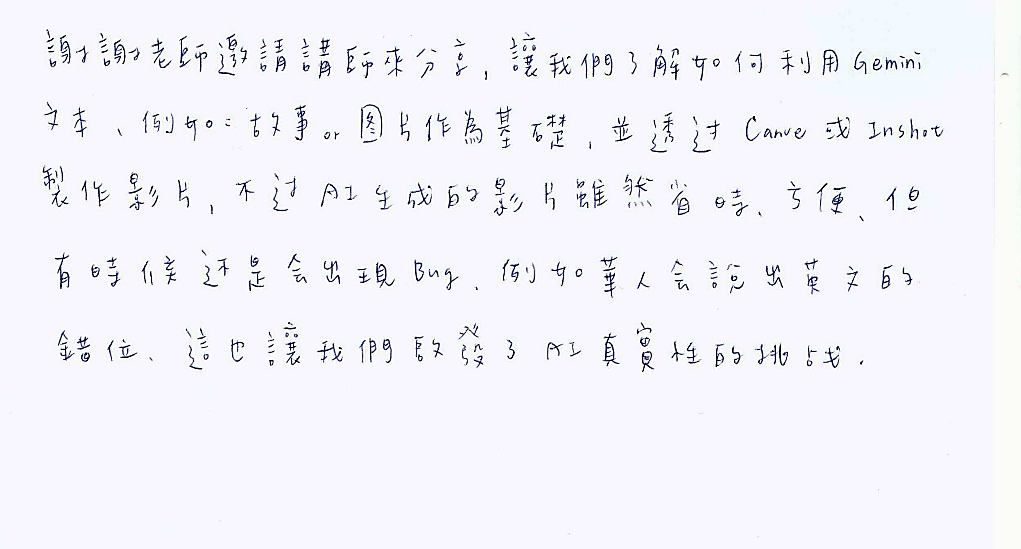 謝謝老師邀請講師來分享，讓我們了解如何利用Gemini
文本、例如：故事or图片作為基礎，並透过Canve或Inshot
製作影片，不过AI生成的影片雖然省時、方便、但
有時候还是会出現Bug、例如華人会說出英文的
錯位、這也讓我們啟發了AI真實性的挑战.